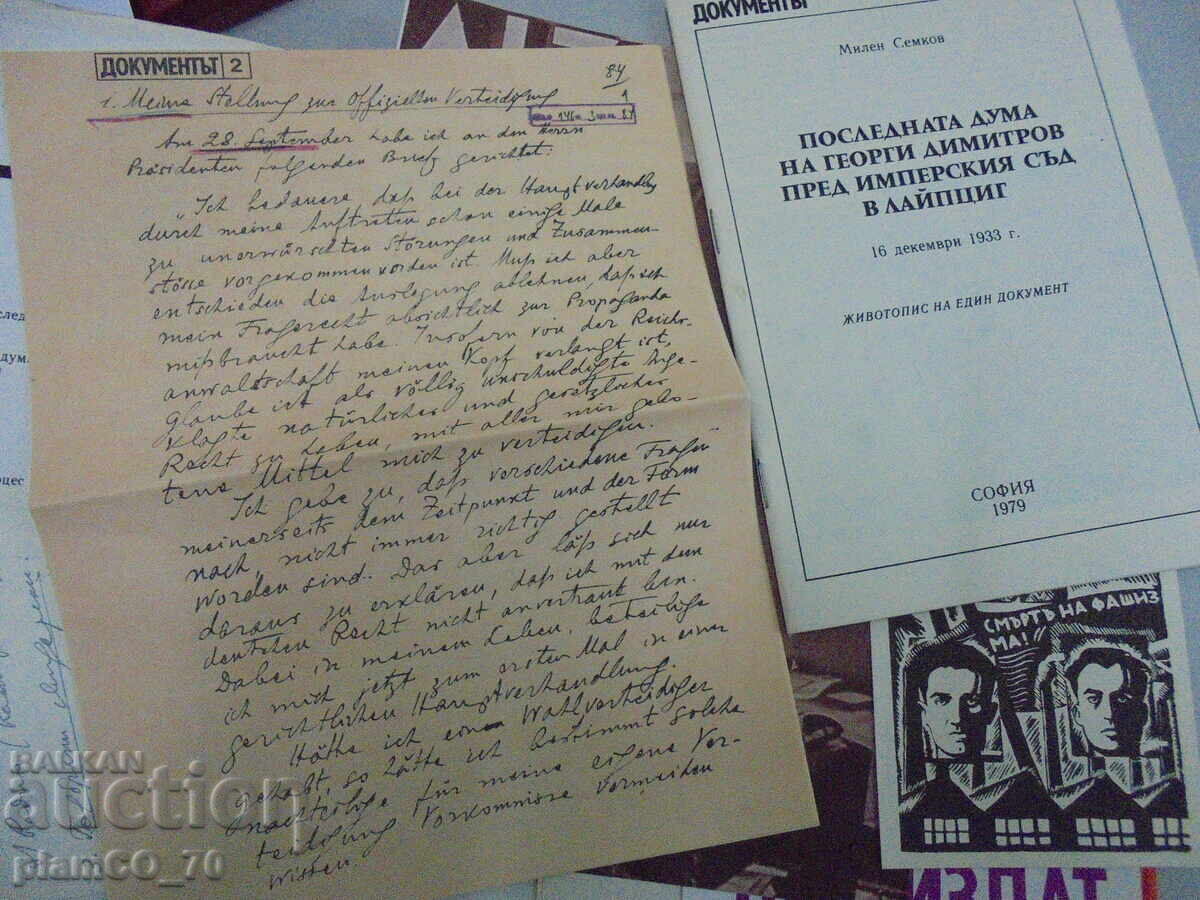 ДОКУМЕНТЪТ 2
84
1
1. Meine Stellung zur Offiziellen Verteidigung
Am 28. September habe ich an den Herrn
Präsidenten folgenden Brief gerichtet:
"Ich bedauere daß bei der Hauptverhandlg
durch meine Auftreten schon einige Male
zu unerwünschten Störungen und Zusammen-
stösse vorgekommen worden ist. Muß ich aber
entschieden die Auslegung ablehnen, daß ich
mein Fragerecht absichtlich zur Propaganda
mißbraucht habe. Insofern von der Reichs-
anwaltschaft meinen Kopf verlangt ist,
glaube ich als völlig unschuldigte Ange-
klagte natürliches und gesetzliches
Recht zu haben, mit aller mir gebo-
tene Mittel mich zu verteidigen.
Ich gebe zu, daß verschiedene Fragen
meinerseits dem Zeitpunkt und der Form
nach, nicht immer richtig gestellt
worden sind. Das aber läßt sich nur
daraus zu erklären, daß ich mit dem
deutschen Recht nicht anvertraut bin.
Dabei in meinem Leben, beteilige
ich mich jetzt zum ersten Mal in einer
gerichtlichen Hauptverhandlung.
Hätte ich einen Wahlverteidiger
gehabt, so hätte ich bestimmt solche
für meine eigene Ver-
teidigung Vorkommnisse vermeiden
wissen.
ДОКУМЕНТЪТ
Милен Семков
ПОСЛЕДНАТА ДУМА
НА ГЕОРГИ ДИМИТРОВ
ПРЕД ИМПЕРСКИЯ СЪД
В ЛАЙПЦИГ
16 декември 1933 г.
ЖИВОТОПИС НА ЕДИН ДОКУМЕНТ
СОФИЯ
1979
СМЪРТЬ НА ФАШИЗ
МА!
ИЗПАТ
BALKAN
auction
plamCO_70